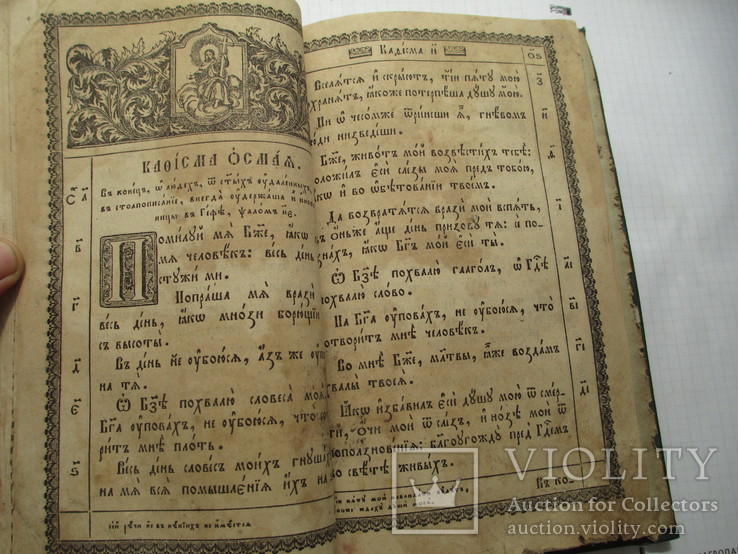 КАѲІСМА О҆СМАѦ.
Въ конецъ, ѡ҆ людехъ, ѿ ст҃ыхъ ᲂу҆даленныхъ,
въ столпописаніе, внегда ᲂу҆держаша и҆
ницы въ Геѳѣ, ѱаломъ н҃е.
Помилуй мѧ̀ Бж҃е, ꙗ҆́кѡ
мѧ̀ человѣкъ: весь день
стужи ми.
Попраша мѧ̀ врази
весь день, ꙗ҆́кѡ мнози борющіи
съ высоты.
Въ день не ᲂу҆боюсѧ, а҆́зъ же
на тѧ̀.
Ѡ҆ Бз҃ѣ похвалю̀ словеса моѧ̑
Бг҃а ᲂу҆повахъ, не ᲂу҆боюсѧ, что
ритъ мнѣ плоть.
Весь день словесъ моихъ гнуша
на мѧ̀ всѧ̑ помышленїѧ и҆́хъ на
са҃
в҃
г҃
д҃
є҃
ѕ҃
Каѳісма и҃
ѻ҃ѕ
Вселѧтсѧ и҆ скрыютъ, тіи пѧту мою̀
хранѧтъ, ꙗ҆́коже потерпѣша душу мою̀.
Ни ѡ҆ чесомже ѿринеши ѧ҆̀, гнѣвомъ
юди низведеши.
Бж҃е, животъ мой возвѣстихъ тебѣ:
положилъ є҆сѝ слезы моѧ̑ предъ тобою,
ꙗ҆́кѡ и҆ во ѡ҆бѣтованіи твоемъ.
Да возвратѧтсѧ врази мои вспѧть,
въ ѻ҆́ньже а҆́ще день призову тѧ̀: сѐ по
знахъ, ꙗ҆́кѡ Бг҃ъ мой є҆сѝ ты̀.
Ѡ҆ Бз҃ѣ похвалю̀ глаголъ, ѡ҆ Гд҇ѣ
похвалю̀ слово.
На Бг҃а ᲂу҆повахъ, не ᲂу҆боюсѧ, что
отворитъ мнѣ человѣкъ.
Во мнѣ Бж҃е, мл҃твы, ꙗ҆̀же воздамъ
хвалы̀ твоеѧ̀.
Ꙗ҆́кѡ и҆збавилъ є҆сѝ душу мою̀ ѿ смер
ти, ѻ҆́чи мои ѿ слезъ, и҆ нозѣ мои ѿ
поползновеніѧ: благоугожду̀ предъ Гд҇емъ
во свѣтѣ живыхъ.
Въ ко-
з҃
и҃
ѳ҃
і҃
а҃і
в҃і
г҃і
д҃і
VIOLITY
Auction for Collectors
auction.violity.com